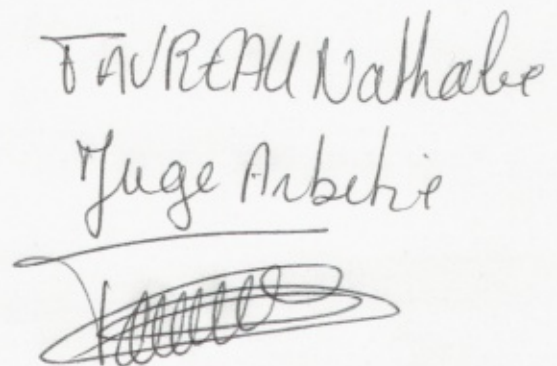 FAVREAU Nathalie
Juge Arbitre